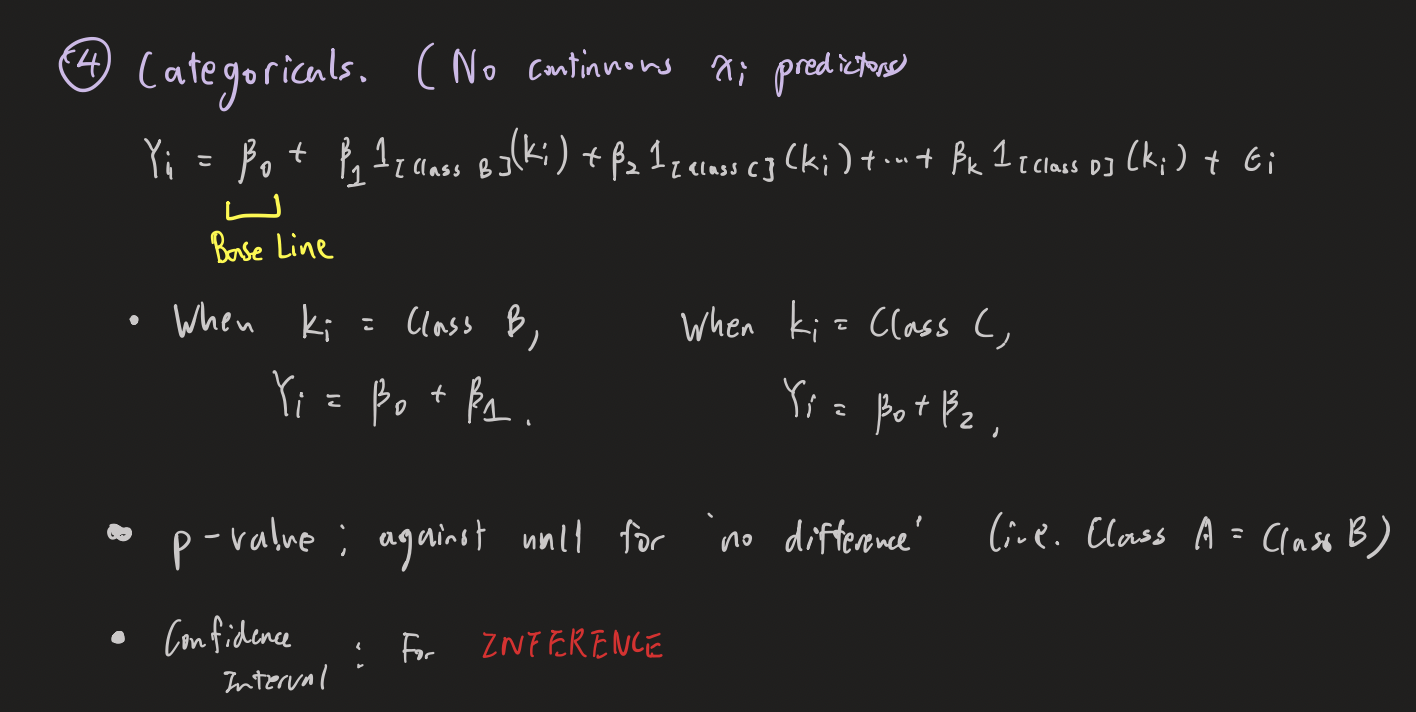 ④ Categoricals. (No continuous xᵢ predictors)
Yᵢ = β₀ + β₁ 1[Class B](kᵢ) + β₂ 1[Class C](kᵢ) + ... + βₖ 1[Class D](kᵢ) + ϵᵢ
Base Line
• When kᵢ = Class B, When kᵢ = Class C,
Yᵢ = β₀ + β₁. Yᵢ = β₀ + β₂,
• p-value ; against null for 'no difference' (i.e. Class A = Class B)
• Confidence
Interval : For INFERENCE